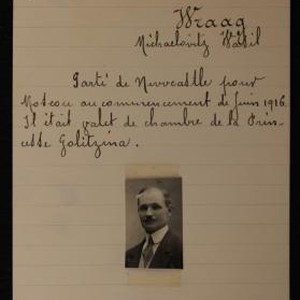 Wraag
Michaelovitz Wasil
Parti de Newcastle pour
Moscou au commencement de juin 1916.
Il était valet de chambre de la Prin-
cesse Golitzina.